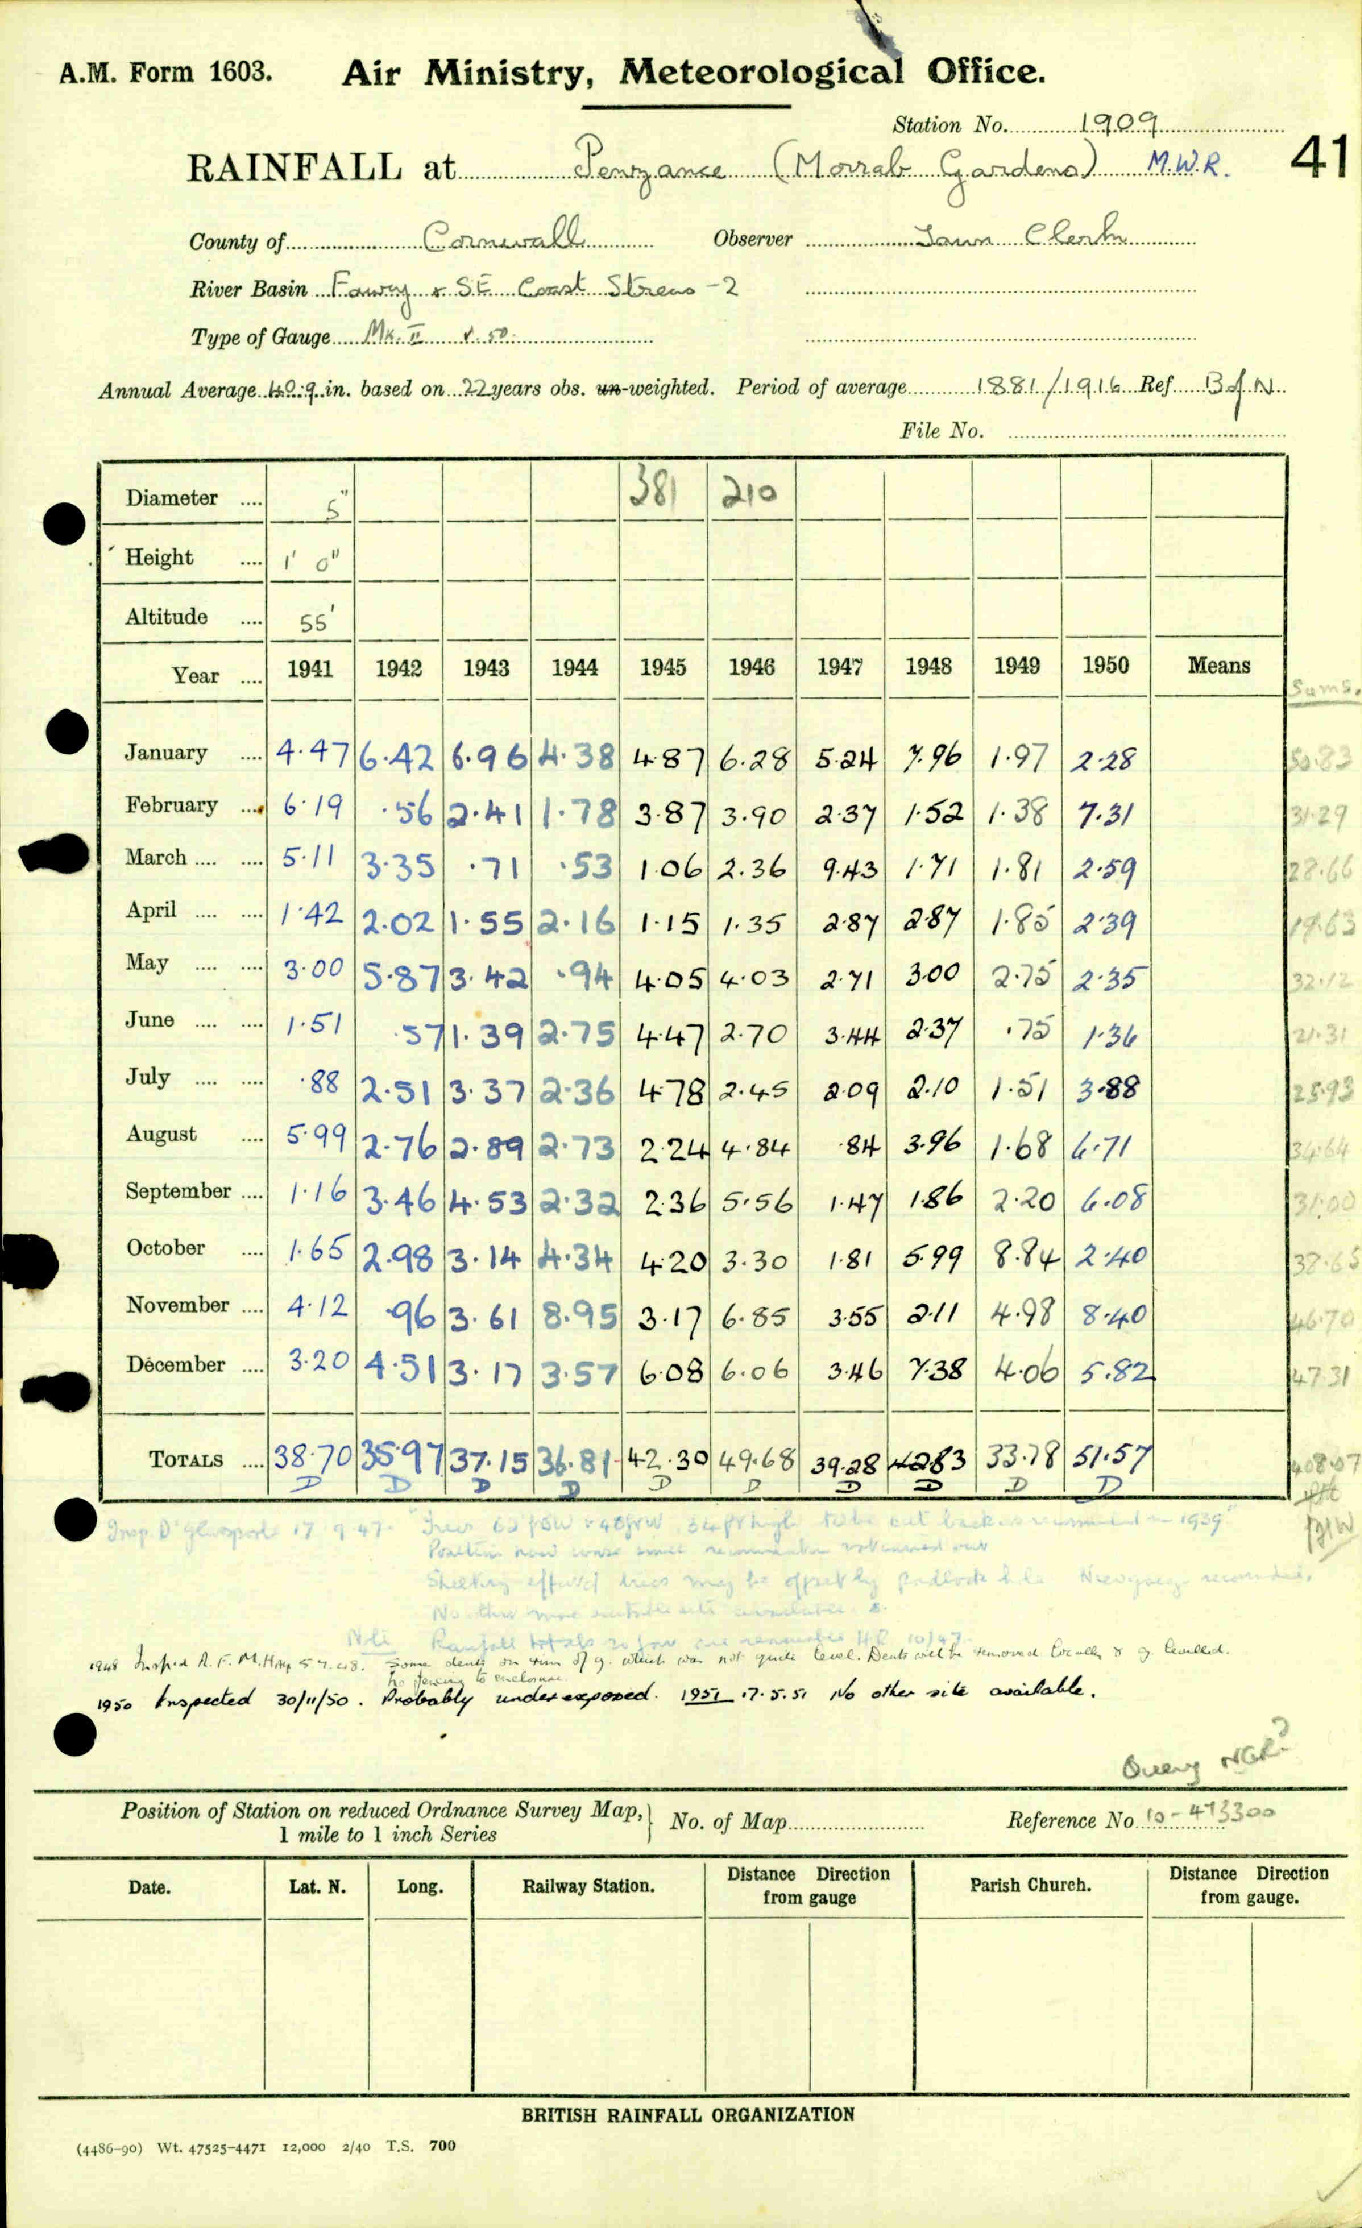 A.M. Form 1603. Air Ministry, Meteorological Office.
Station No. 1909
RAINFALL at Penzance (Morrab Gardens) M.W.R. 41
County of Cornwall Observer Town Clerk
River Basin Fowey & SE Coast Streams - 2
Type of Gauge Mk. II
Annual Average 40.9 in. based on 22 years obs. un-weighted. Period of average 1881/1916 Ref B of N
File No.
Diameter .... 5" 381 210
Height .... 1' 0"
Altitude .... 55'
Year .... 1941 1942 1943 1944 1945 1946 1947 1948 1949 1950 Means Sums.
January .... 4.47 6.42 6.96 4.38 4.87 6.28 5.24 7.96 1.97 2.28 50.83
February .... 6.19 .56 2.41 1.78 3.87 3.90 2.37 1.52 1.38 7.31 31.29
March .... .... 5.11 3.35 .71 .53 1.06 2.36 9.43 1.71 1.81 2.59 28.66
April .... .... 1.42 2.02 1.55 2.16 1.15 1.35 2.87 2.87 1.85 2.39 19.63
May .... .... 3.00 5.87 3.42 .94 4.05 4.03 2.71 3.00 2.75 2.35 32.12
June .... .... 1.51 .57 1.39 2.75 4.47 2.70 3.44 2.37 .75 1.36 21.31
July .... .... .88 2.51 3.37 2.36 4.78 2.45 2.09 2.10 1.51 3.88 25.93
August .... 5.99 2.76 2.89 2.73 2.24 4.84 .84 3.96 1.68 6.71 34.64
September .... 1.16 3.46 4.53 2.32 2.36 5.56 1.47 1.86 2.20 6.08 31.00
October .... 1.65 2.98 3.14 4.34 4.20 3.30 1.81 5.99 8.84 2.40 38.65
November .... 4.12 .96 3.61 8.95 3.17 6.85 3.55 2.11 4.98 8.40 46.70
December .... 3.20 4.51 3.17 3.57 6.08 6.06 3.46 7.38 4.06 5.82 47.31
TOTALS .... 38.70 35.97 37.15 36.81 42.30 49.68 39.28 4283 33.78 51.57 408.07
D D D D D D D D D D
Insp D 17.9.47 "Trees 34ft high to be cut back as recommended in 1939"
Position now worse since recommendation not carried out
Sheltering effect of trees may be offset by
No other more suitable site available.
Note Rainfall totals so far are reasonable 10/47
1948 Insp'd 5.7.48. Some dents on rim of g. which was not quite level. Dents will be removed locally & g. levelled.
No fencing to enclosure.
1950 Inspected 30/11/50. Probably under exposed. 1951 17.5.51 No other site available.
Query NGR?
Position of Station on reduced Ordnance Survey Map, 1 mile to 1 inch Series No. of Map Reference No 10-473300
Date. Lat. N. Long. Railway Station. Distance Direction from gauge Parish Church. Distance Direction from gauge.
BRITISH RAINFALL ORGANIZATION
(4486-90) Wt. 47525-4471 12,000 2/40 T.S. 700